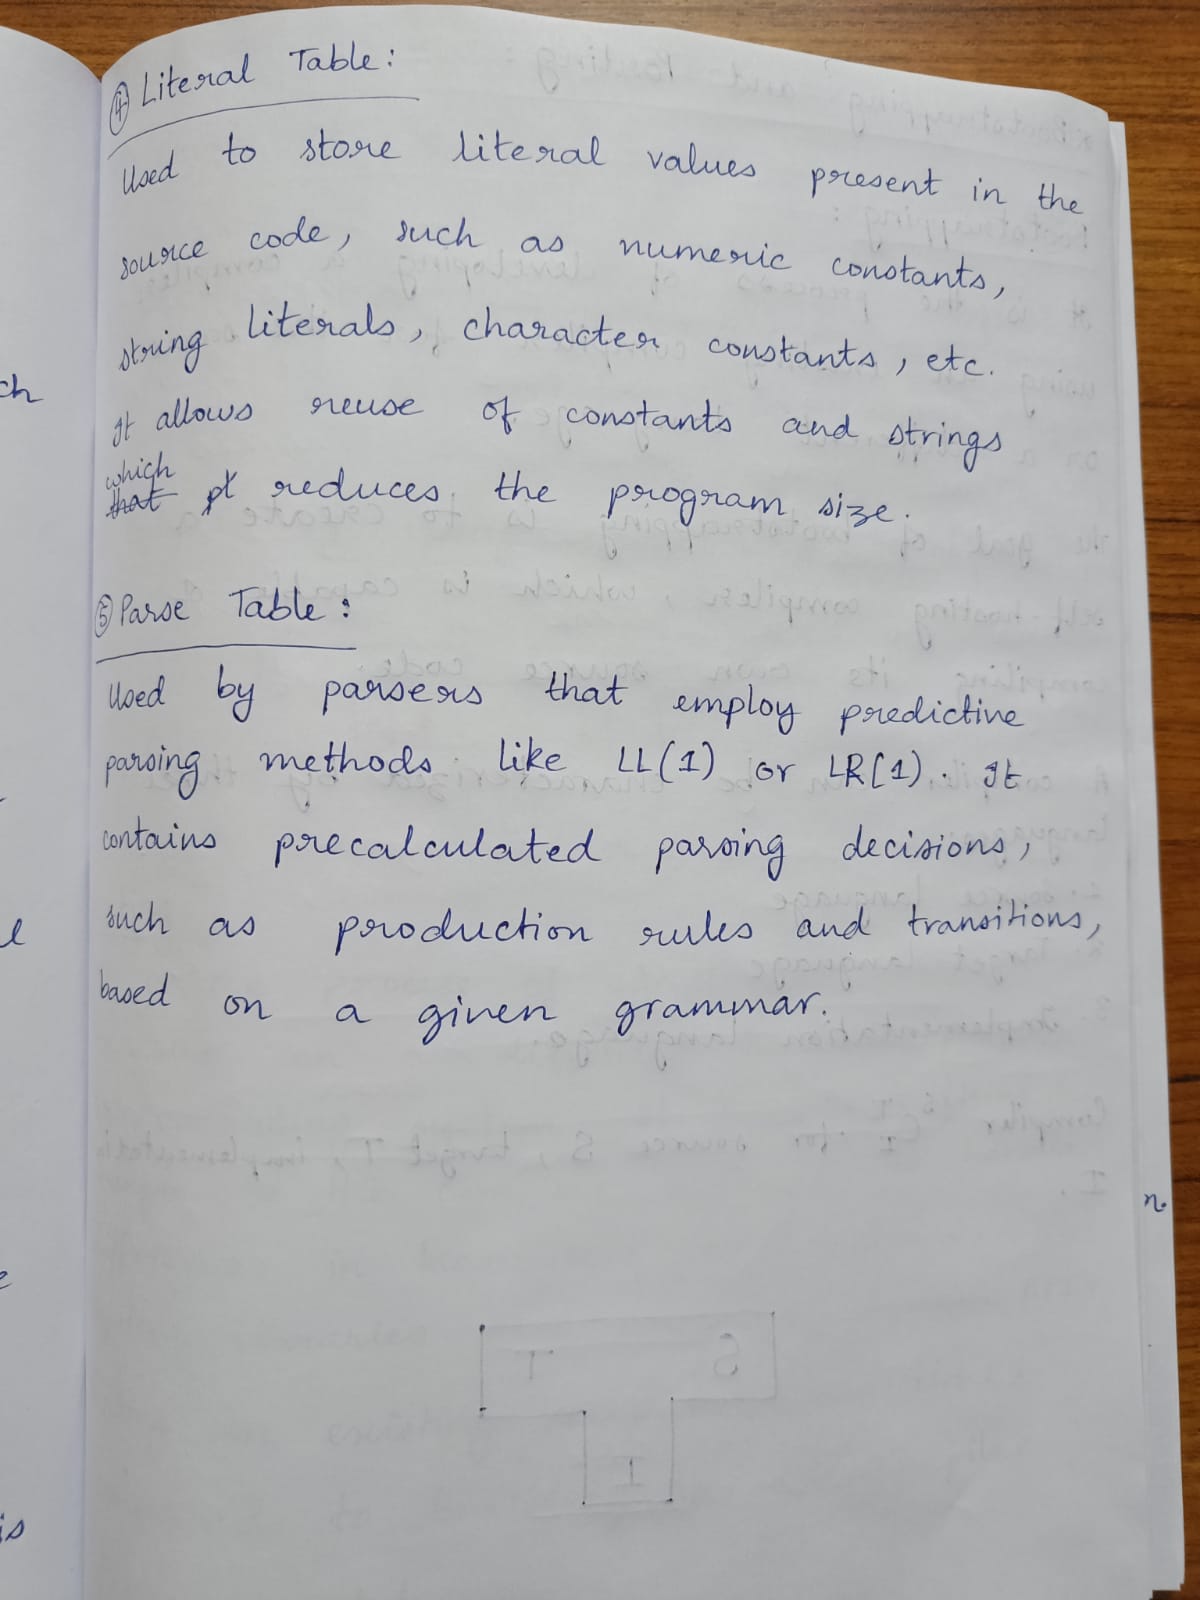 ④ Literal Table:
Used to store literal values present in the
source code, such as numeric constants,
string literals, character constants, etc.
It allows reuse of constants and strings
which
that it reduces the program size.
⑤ Parse Table:
Used by parsers that employ predictive
parsing methods like LL(1) or LR(1). It
contains precalculated parsing decisions,
such as production rules and transitions,
based on a given grammar.
ch
n.
is